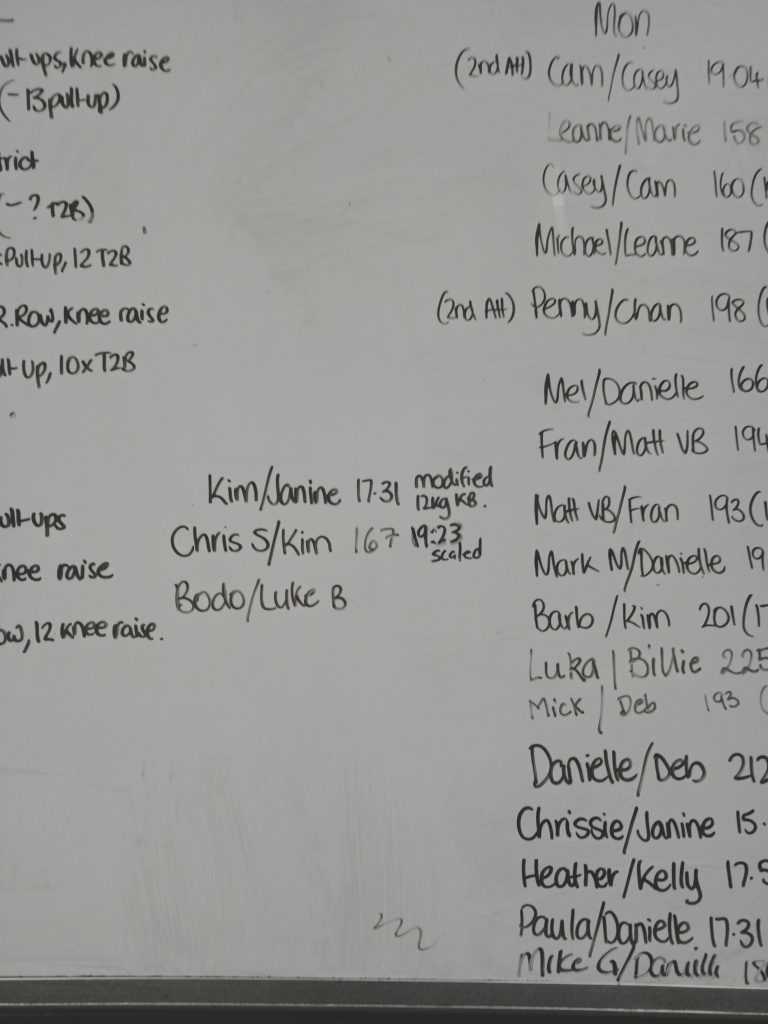 ull-ups, Knee raise
(-13 pull-up)
trict
(-? T2B)
Pull-up, 12 T2B
R.Row, Knee raise
ull-Up, 10x T2B
ull-ups
nee raise
ow, 12 Knee raise.
Kim/Janine 17.31 modified
12kg KB.
Chris S/Kim 167 19:23
scaled
Bodo/Luke B
Mon
(2nd Att) Cam/Casey 1904
Leanne/Marie 158
Casey/Cam 160 (
Michael/Leanne 187 (
(2nd Att) Penny/Chan 198 (
Mel/Danielle 166
Fran/Matt VB 194
Matt VB/Fran 193 (1
Mark M/Danielle 19
Barb /Kim 201 (17
Luka | Billie 225
Mick | Deb 193 (
Danielle/Deb 212
Chrissie/Janine 15.
Heather/Kelly 17.5
Paula/Danielle 17.31
Mike G/Danielle